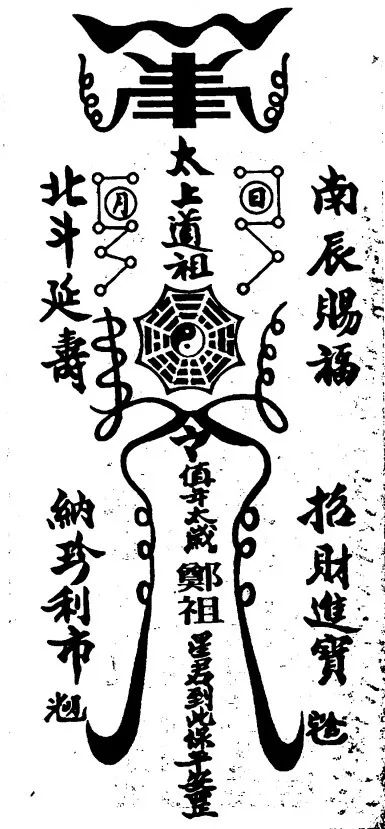 南辰賜福
日
太上道祖
月
北斗延壽
招財進寶
令
值年太歲鄭祖星君到此保平安
納珍利市